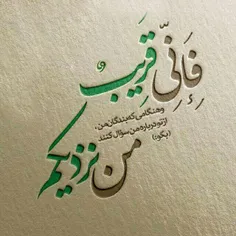 فَإِنِّي قَرِيبٌ
وهنگامی که بندگان من،
از تو درباره من سؤال کنند
(بگو:)
من نزدیکم